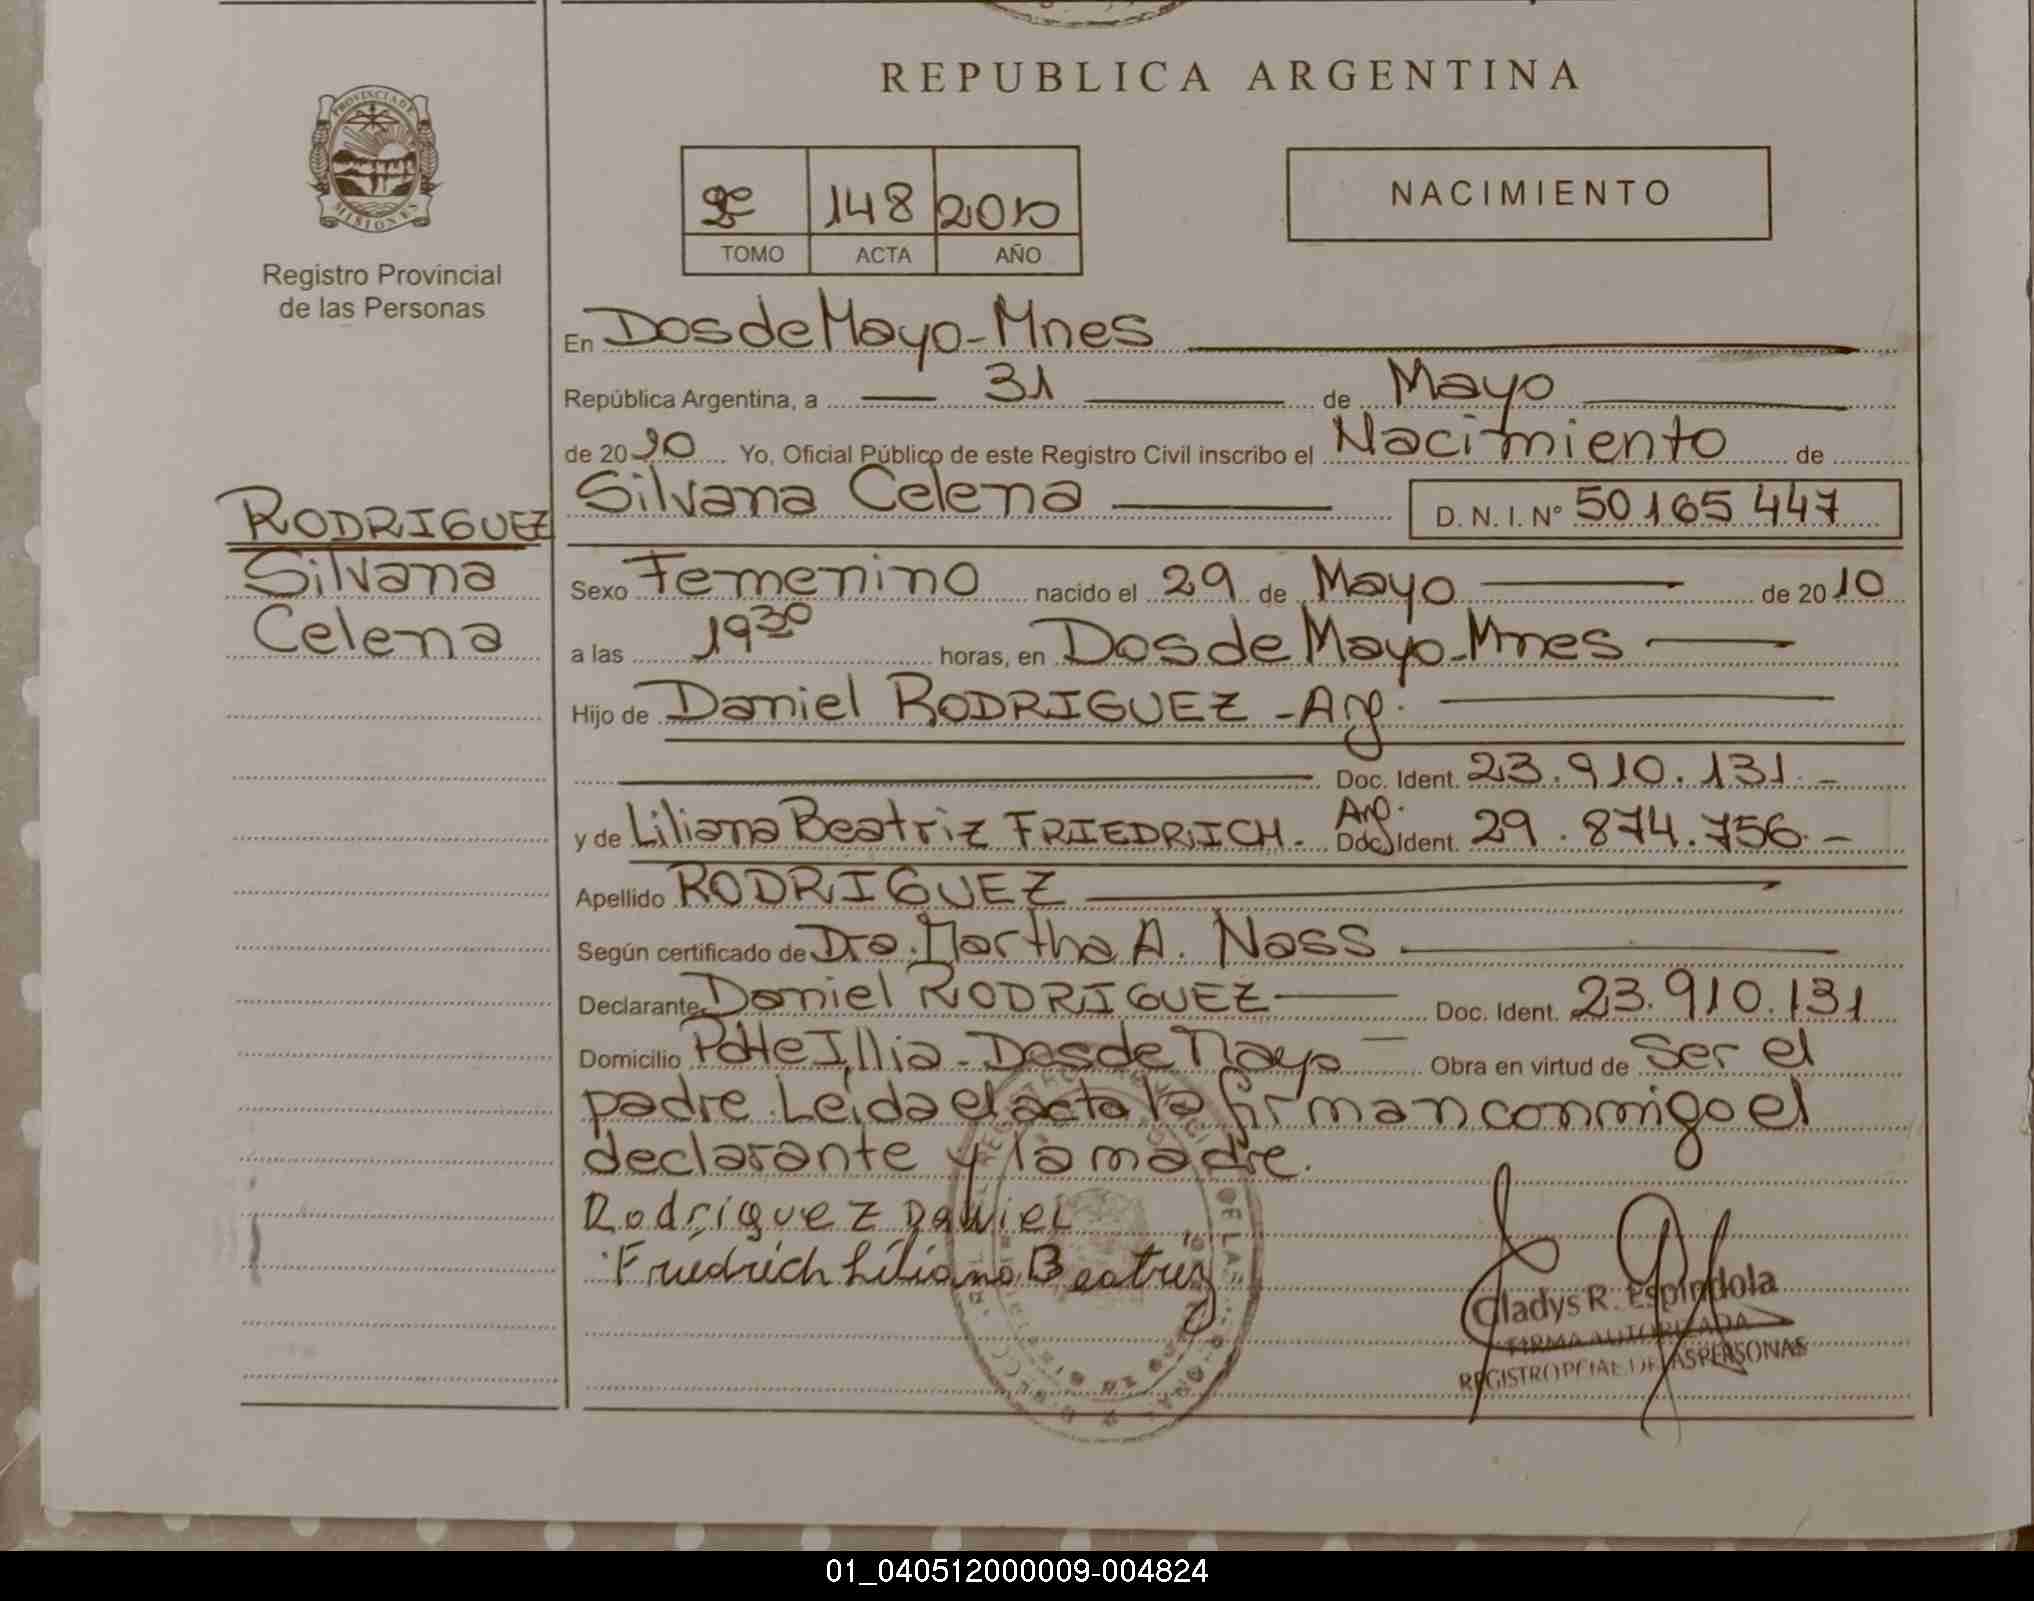 REPUBLICA ARGENTINA
PROVINCIA DE
MISIONES
Registro Provincial
de las Personas
2º 148 2010
TOMO ACTA AÑO
NACIMIENTO
En Dos de Mayo - Mnes
República Argentina, a 31 de Mayo
de 2010 Yo, Oficial Público de este Registro Civil inscribo el Nacimiento de
Silvana Celena D.N.I. Nº 50165447
RODRIGUEZ
Silvana
Celena
Sexo Femenino nacido el 29 de Mayo de 2010
a las 19 30 horas, en Dos de Mayo - Mnes
Hijo de Daniel RODRIGUEZ - Arg.
Doc. Ident. 23.910.131.-
y de Liliana Beatriz FRIEDRICH. Arg. Doc. Ident. 29.874.756.-
Apellido RODRIGUEZ
Según certificado de Dra. Martha A. Nass
Declarante Daniel RODRIGUEZ Doc. Ident. 23.910.131
Domicilio Pdte Illia - Dos de Mayo Obra en virtud de Ser el
padre. Leída el acta la firman conmigo el
declarante y la madre.
Rodriguez Daniel
Friedrich Liliana Beatriz
Gladys R. Espindola
FIRMA AUTORIZADA
REGISTRO PCIAL DE LAS PERSONAS
01_040512000009-004824